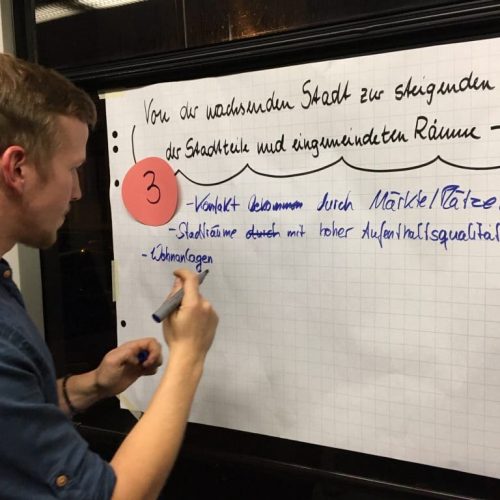 Von der wachsenden Stadt zur steigenden
der Stadtteile und eingemeindeten Räume -
3
- Kontakt bekommen durch Märkte/Plätze
- Stadträume durch mit hoher Aufenthaltsqualität
- Wohnanlagen